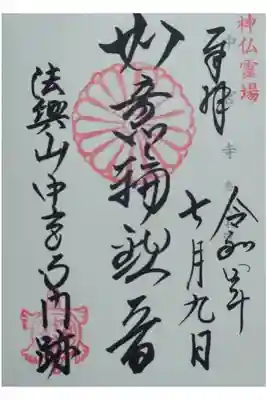 神仏霊場
奉拝
令和四年
七月九日
如意輪観音
法興山中宮寺門跡